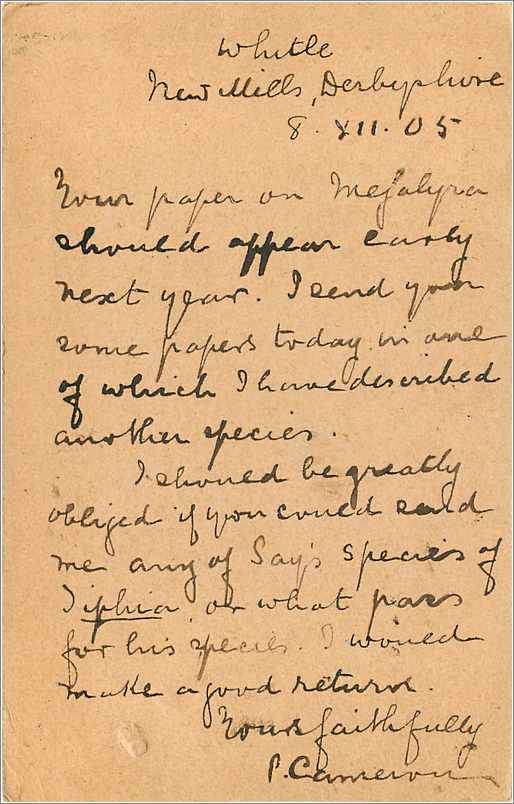 Whitle
New Mills, Derbyshire
8. XII. 05
Your paper on Megalyra
should appear early
next year. I send you
some papers today in one
of which I have described
another species.
I should be greatly
obliged if you could send
me any of Say's species of
Tiphia, or what pass
for his species. I would
make a good return.
Yours faithfully
P. Cameron